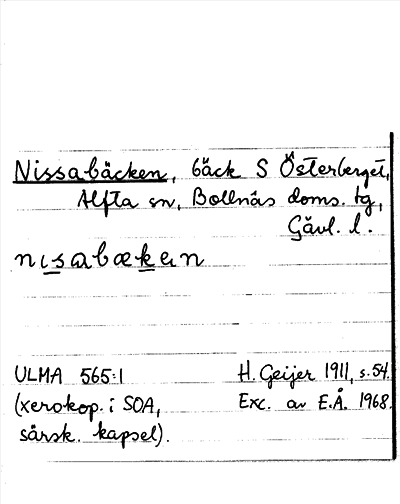 Nissabäcken, bäck S Österberget,
Alfta sn, Bollnäs doms. tg,
Gävl. l.
nisabækein
ULMA 565:1 H. Geijer 1911, s. 54.
(xerokop. i SOA, Exc. av E.Å. 1968.
särsk. kapsel).